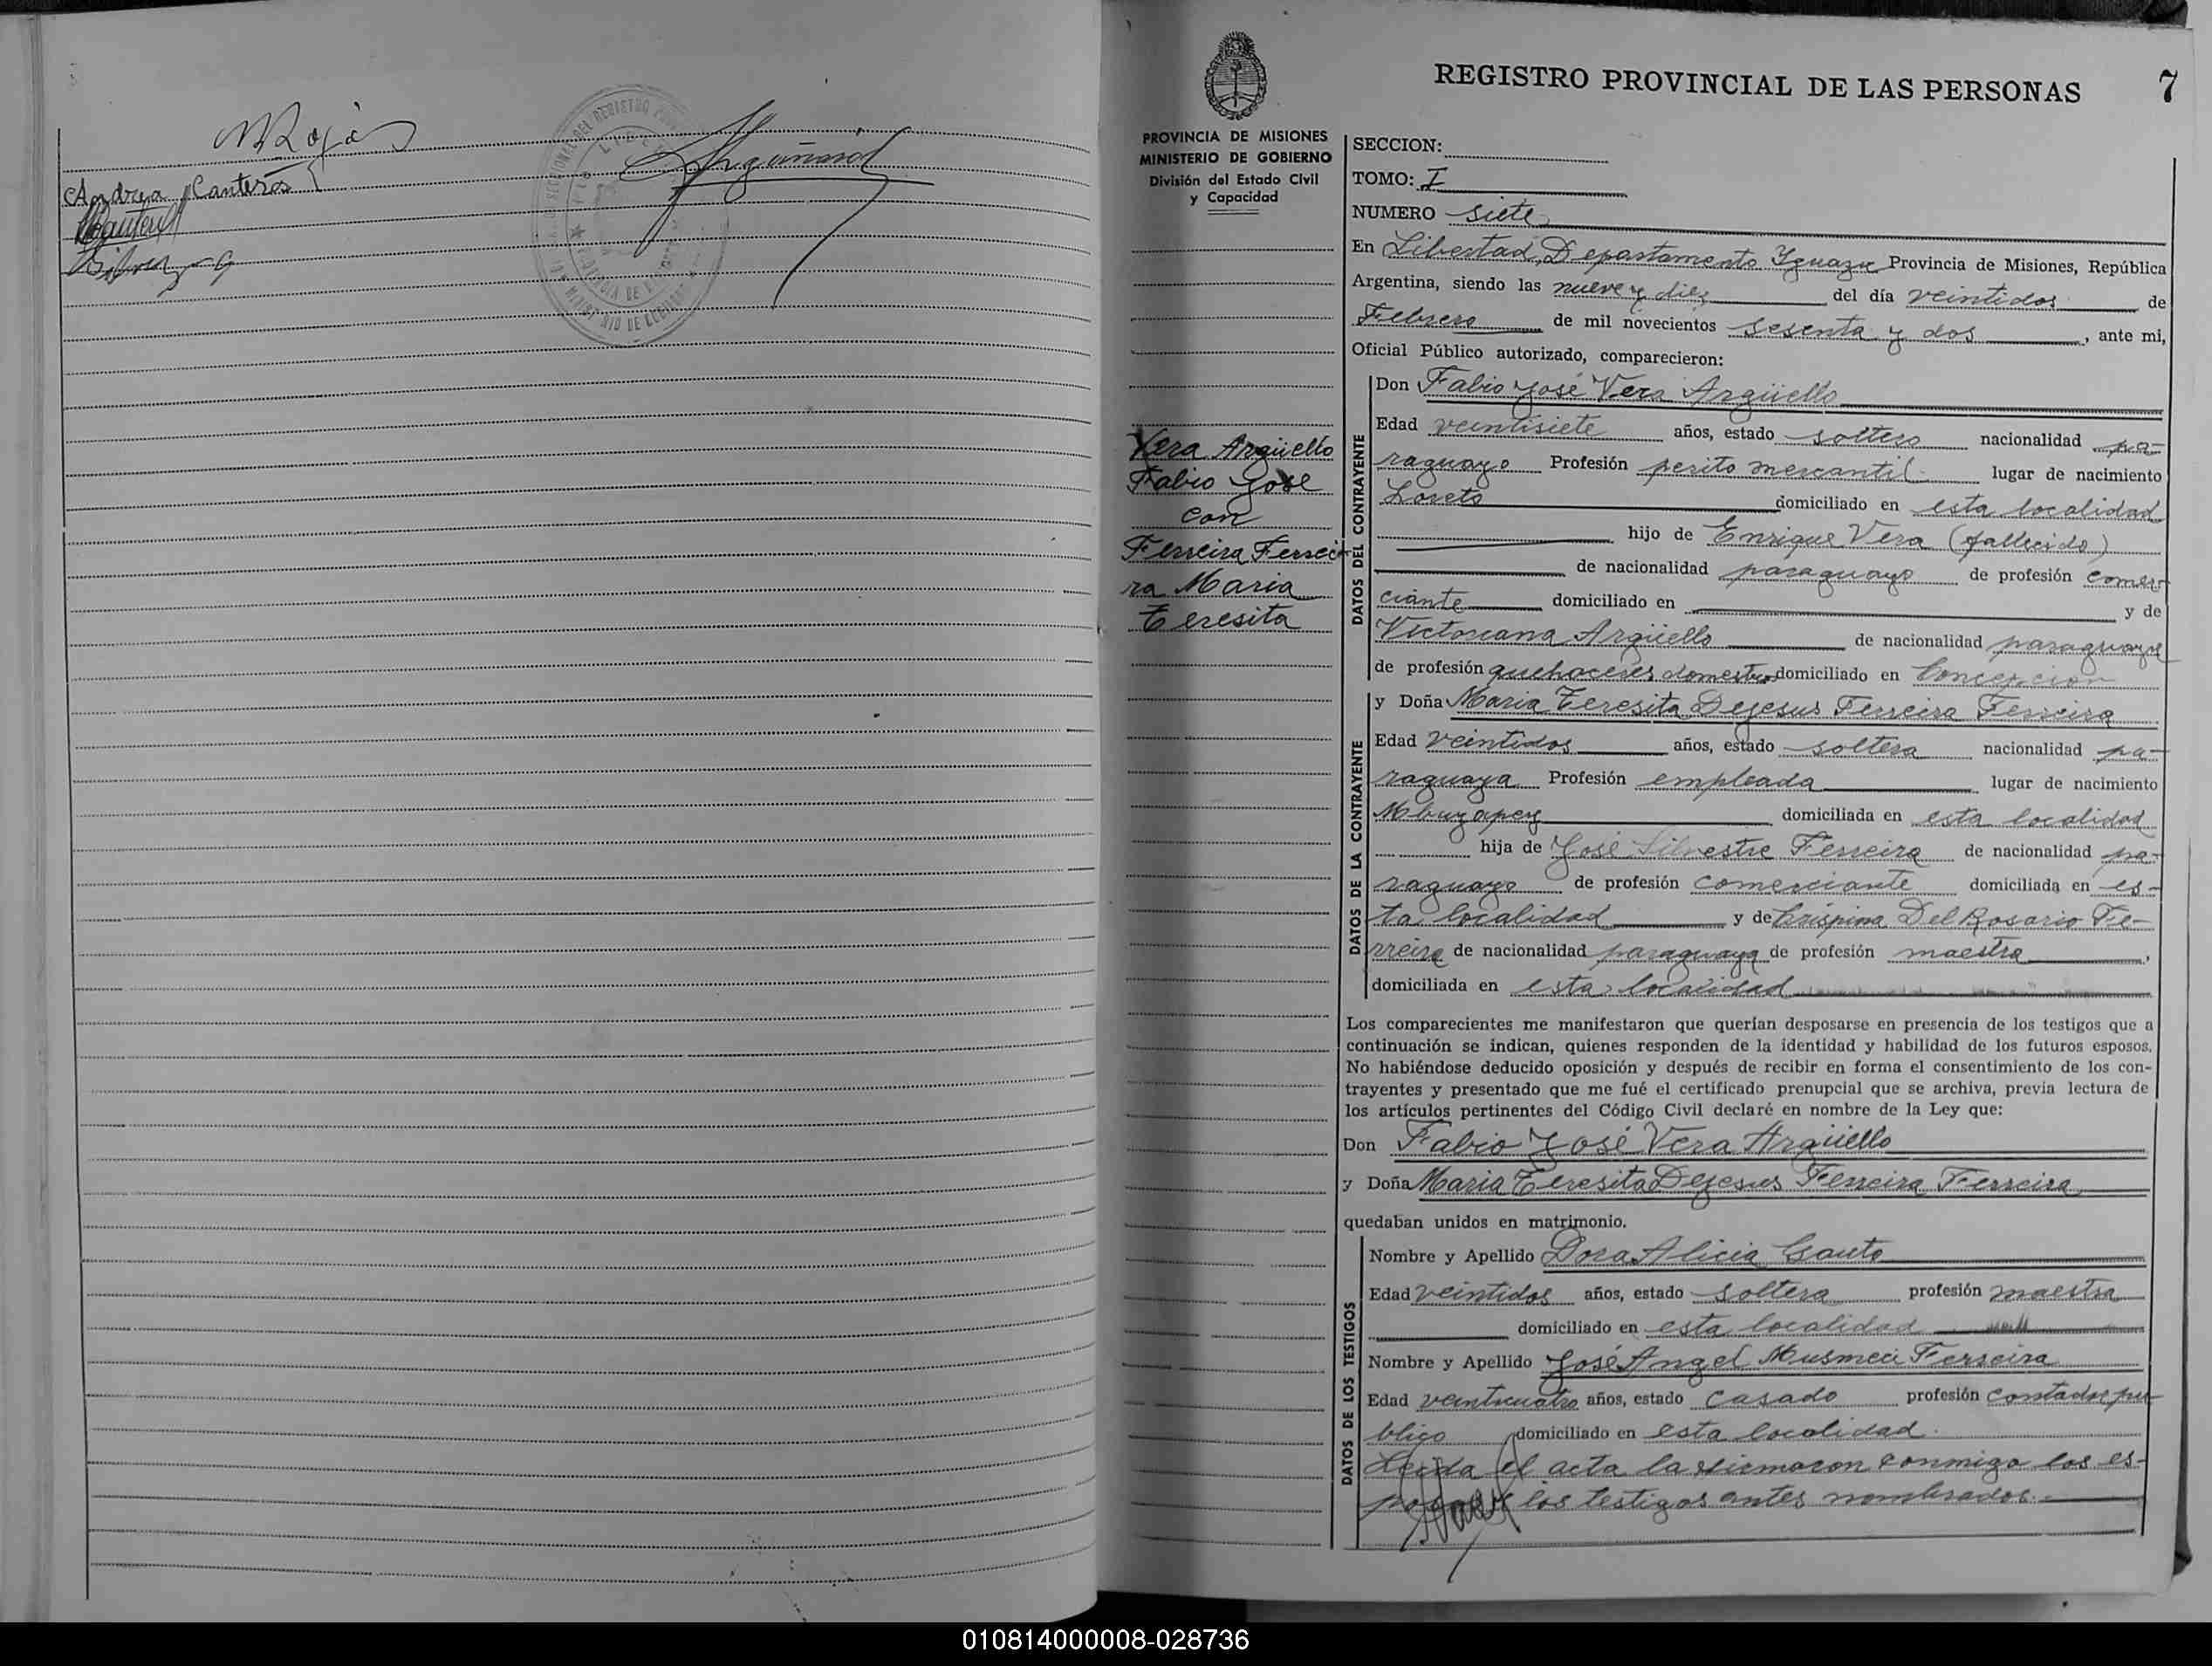 Rojas
Andrea Canteros
REGISTRO PROVINCIAL DE LAS PERSONAS 7
PROVINCIA DE MISIONES
MINISTERIO DE GOBIERNO
División del Estado Civil
y Capacidad
Vera Argüello
Fabio José
con
Ferreira Ferrei
ra Maria
Teresita
SECCION:
TOMO: I
NUMERO siete
En Libertad, Departamento Iguazu Provincia de Misiones, República
Argentina, siendo las nueve y diez del día veintidos de
Febrero de mil novecientos sesenta y dos, ante mi,
Oficial Público autorizado, comparecieron:
DATOS DEL CONTRAYENTE
Don Fabio José Vera Argüello
Edad veintisiete años, estado soltero nacionalidad pa-
raguayo Profesión perito mercantil lugar de nacimiento
Loreto domiciliado en esta localidad
hijo de Enrique Vera (fallecido)
de nacionalidad paraguayo de profesión comer-
ciante domiciliado en y de
Victoriana Argüello de nacionalidad paraguaya
de profesión quehaceres domestico domiciliado en Concepcion
DATOS DE LA CONTRAYENTE
y Doña Maria Teresita Dejesus Ferreira Ferreira
Edad veintidos años, estado soltera nacionalidad pa-
raguaya Profesión empleada lugar de nacimiento
Mbuyapey domiciliada en esta localidad
hija de José Silvestre Ferreira de nacionalidad pa-
raguayo de profesión comerciante domiciliada en es-
ta localidad y de Crispina Del Rosario Fe-
rreira de nacionalidad paraguaya de profesión maestra,
domiciliada en esta localidad
Los comparecientes me manifestaron que querían desposarse en presencia de los testigos que a
continuación se indican, quienes responden de la identidad y habilidad de los futuros esposos.
No habiéndose deducido oposición y después de recibir en forma el consentimiento de los con-
trayentes y presentado que me fué el certificado prenupcial que se archiva, previa lectura de
los artículos pertinentes del Código Civil declaré en nombre de la Ley que:
Don Fabio José Vera Argüello
y Doña Maria Teresita Dejesus Ferreira Ferreira
quedaban unidos en matrimonio.
DATOS DE LOS TESTIGOS
Nombre y Apellido Dora Alicia Gauto
Edad veintidos años, estado soltera profesión maestra
domiciliado en esta localidad
Nombre y Apellido José Angel Musmeci Ferreira
Edad veinticuatro años, estado casado profesión contador pu-
blico domiciliado en esta localidad.
Leida el acta la firmaron conmigo los es-
posos y los testigos antes nombrados.
010814000008-028736